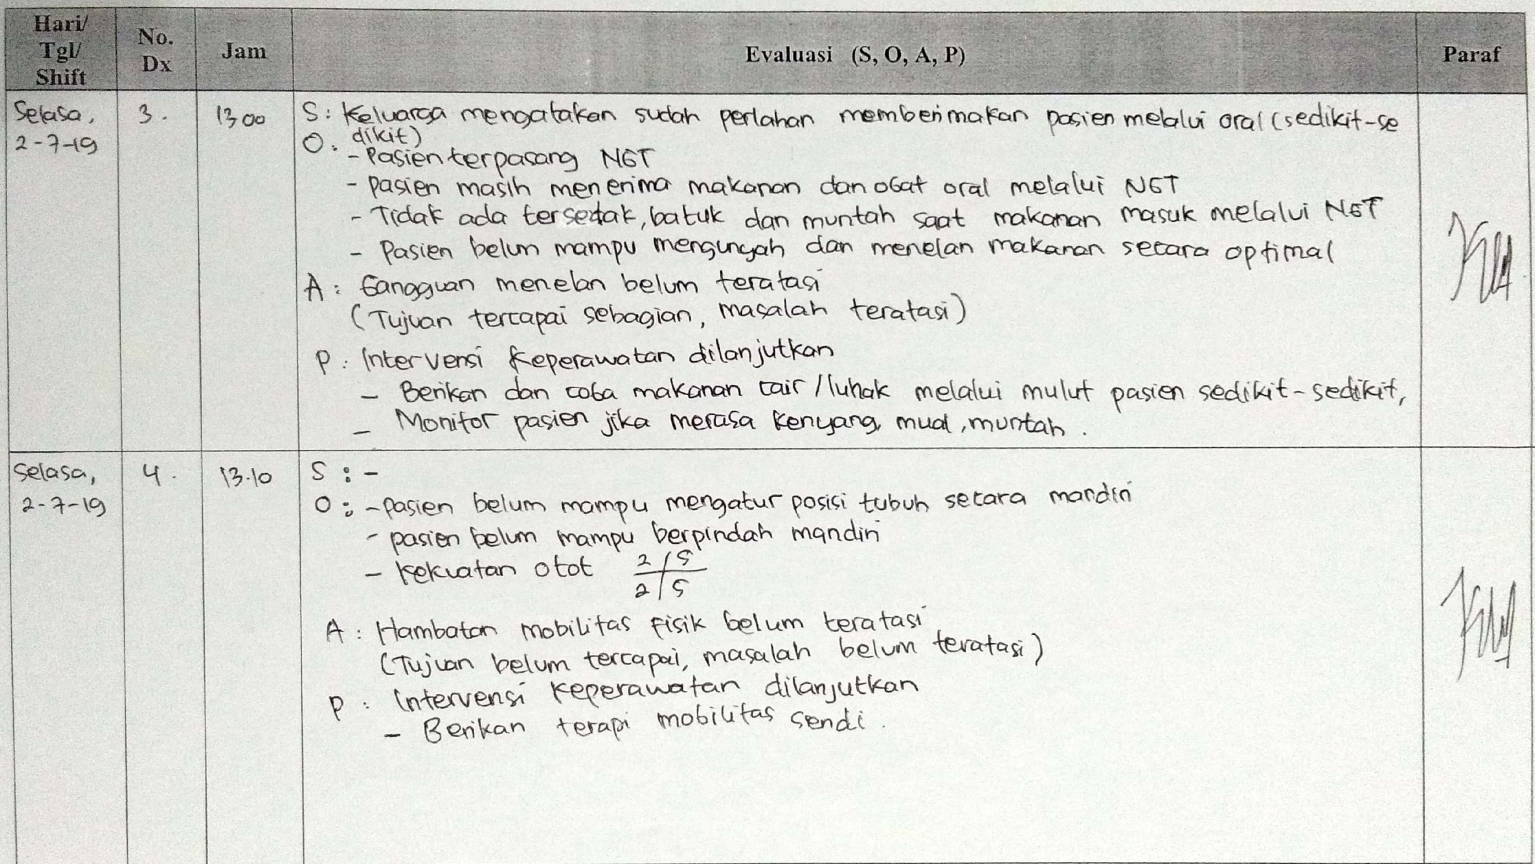 Hari/
Tgl/
Shift
No.
Dx
Jam
Evaluasi (S, O, A, P)
Paraf
Selasa,
2-7-19
3.
13 00
S: Keluarga mengatakan sudah perlahan memberi makan pasien melalui oral (sedikit-se
dikit)
O. - Pasien terpasang NGT
- pasien masih menerima makanan dan obat oral melalui NGT
- Tidak ada tersedak, batuk dan muntah saat makanan masuk melalui NGT
- Pasien belum mampu mengunyah dan menelan makanan secara optimal
A : Gangguan menelan belum teratasi
(Tujuan tercapai sebagian, masalah teratasi)
P. Intervensi keperawatan dilanjutkan
- Berikan dan coba makanan cair / luhak melalui mulut pasien sedikit-sedikit,
- Monitor pasien jika merasa kenyang, mual, muntah.
Selasa,
2-7-19
4.
13.10
S : -
O : - pasien belum mampu mengatur posisi tubuh secara mandiri
- pasien belum mampu berpindah mandiri
- kekuatan otot 2/5
2/5
A : Hambatan mobilitas fisik belum teratasi
(Tujuan belum tercapai, masalah belum teratasi)
P : Intervensi keperawatan dilanjutkan
- Berikan terapi mobilitas sendi.